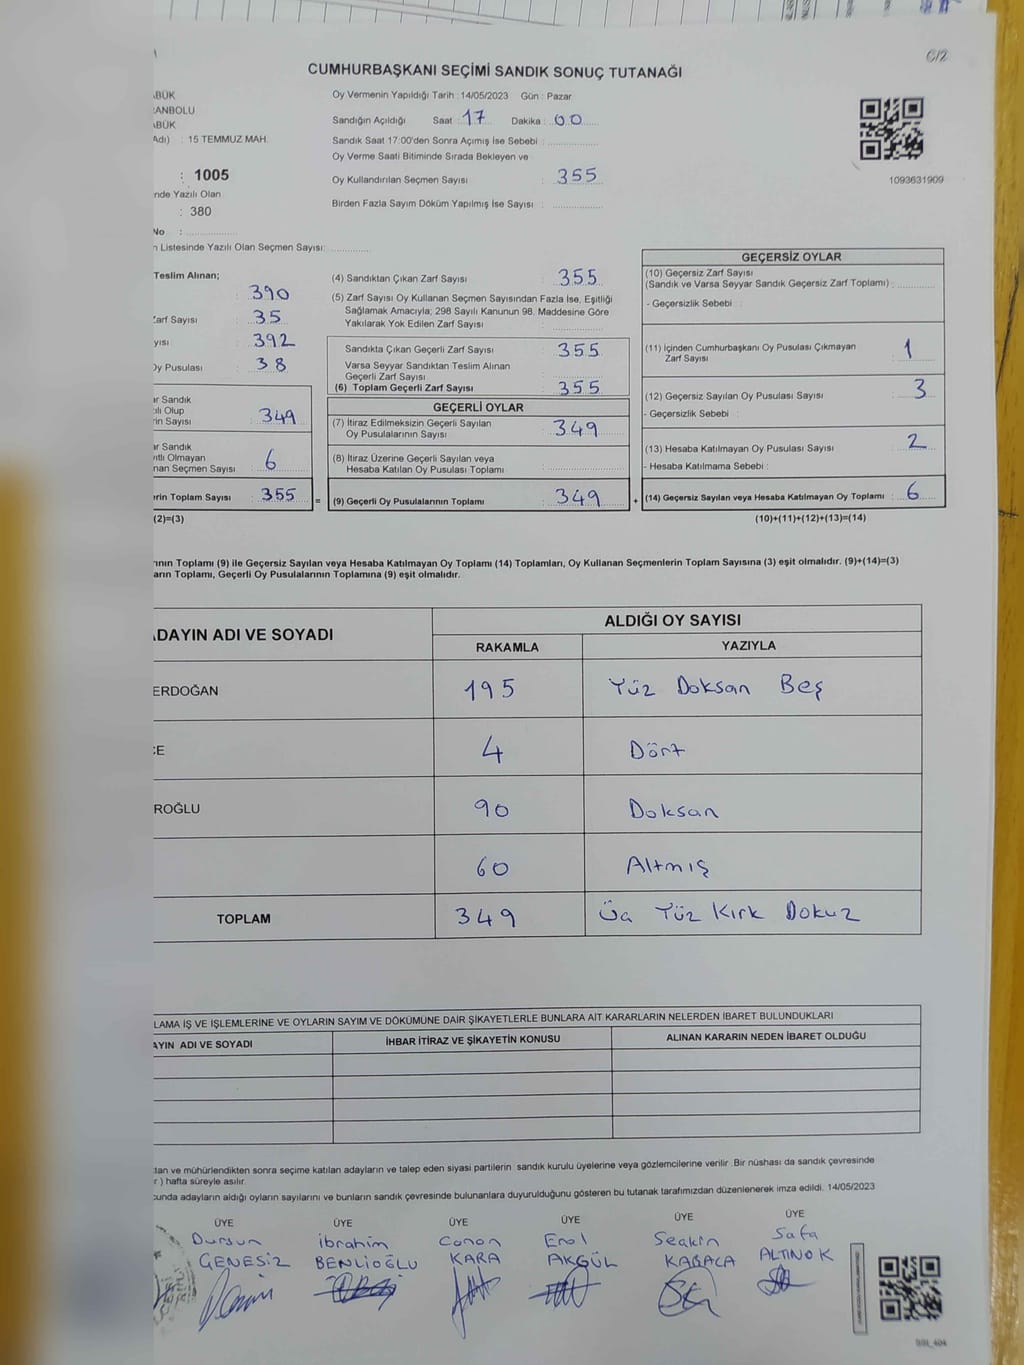 C/2
CUMHURBAŞKANI SEÇİMİ SANDIK SONUÇ TUTANAĞI
ABÜK
ANBOLU
ABÜK
Adı) : 15 TEMMUZ MAH.
: 1005
nde Yazılı Olan
: 380
No :
n Listesinde Yazılı Olan Seçmen Sayısı:
Oy Vermenin Yapıldığı Tarih : 14/05/2023 Gün : Pazar
Sandığın Açıldığı Saat : 17 Dakika : 00
Sandık Saat 17:00'den Sonra Açımış İse Sebebi :
Oy Verme Saati Bitiminde Sırada Bekleyen ve
Oy Kullandırılan Seçmen Sayısı : 355
Birden Fazla Sayım Döküm Yapılmış İse Sayısı :
1093631909
Teslim Alınan;
: 390
Zarf Sayısı : 35
yısı : 392
Oy Pusulası : 38
ar Sandık
ılı Olup
rin Sayısı : 349
ar Sandık
ıtlı Olmayan
nan Seçmen Sayısı : 6
erin Toplam Sayısı : 355 =
(2)=(3)
(4) Sandıktan Çıkan Zarf Sayısı : 355
(5) Zarf Sayısı Oy Kullanan Seçmen Sayısından Fazla İse, Eşitliği
Sağlamak Amacıyla; 298 Sayılı Kanunun 98. Maddesine Göre
Yakılarak Yok Edilen Zarf Sayısı :
Sandıkta Çıkan Geçerli Zarf Sayısı : 355
Varsa Seyyar Sandıktan Teslim Alınan
Geçerli Zarf Sayısı :
(6) Toplam Geçerli Zarf Sayısı : 355
GEÇERLİ OYLAR
(7) İtiraz Edilmeksizin Geçerli Sayılan
Oy Pusulalarının Sayısı : 349
(8) İtiraz Üzerine Geçerli Sayılan veya
Hesaba Katılan Oy Pusulası Toplamı :
(9) Geçerli Oy Pusulalarının Toplamı : 349 +
GEÇERSİZ OYLAR
(10) Geçersiz Zarf Sayısı
(Sandık ve Varsa Seyyar Sandık Geçersiz Zarf Toplamı) :
- Geçersizlik Sebebi :
(11) İçinden Cumhurbaşkanı Oy Pusulası Çıkmayan
Zarf Sayısı : 1
(12) Geçersiz Sayılan Oy Pusulası Sayısı : 3
- Geçersizlik Sebebi :
(13) Hesaba Katılmayan Oy Pusulası Sayısı : 2
- Hesaba Katılmama Sebebi :
(14) Geçersiz Sayılan veya Hesaba Katılmayan Oy Toplamı : 6
(10)+(11)+(12)+(13)=(14)
ının Toplamı (9) ile Geçersiz Sayılan veya Hesaba Katılmayan Oy Toplamı (14) Toplamları, Oy Kullanan Seçmenlerin Toplam Sayısına (3) eşit olmalıdır. (9)+(14)=(3)
arın Toplamı, Geçerli Oy Pusulalarının Toplamına (9) eşit olmalıdır.
ADAYIN ADI VE SOYADI
ALDIĞI OY SAYISI
RAKAMLA YAZIYLA
ERDOĞAN 195 Yüz Doksan Beş
CE 4 Dört
ROĞLU 90 Doksan
60 Altmış
TOPLAM 349 Üç Yüz Kırk Dokuz
LAMA İŞ VE İŞLEMLERİNE VE OYLARIN SAYIM VE DÖKÜMÜNE DAİR ŞİKAYETLERLE BUNLARA AİT KARARLARIN NELERDEN İBARET BULUNDUKLARI
AYIN ADI VE SOYADI İHBAR İTİRAZ VE ŞİKAYETİN KONUSU ALINAN KARARIN NEDEN İBARET OLDUĞU
tan ve mühürlendikten sonra seçime katılan adayların ve talep eden siyasi partilerin sandık kurulu üyelerine veya gözlemcilerine verilir .Bir nüshası da sandık çevresinde
r ) hafta süreyle asılır.
cunda adayların aldığı oyların sayılarını ve bunların sandık çevresinde bulunanlara duyurulduğunu gösteren bu tutanak tarafımızdan düzenlenerek imza edildi. 14/05/2023
ÜYE ÜYE ÜYE ÜYE ÜYE ÜYE
Dursun İbrahim Canan Erol Seçkin Safa
GENESİZ BENLİOĞLU KARA AKGÜL KABACA ALTINOK